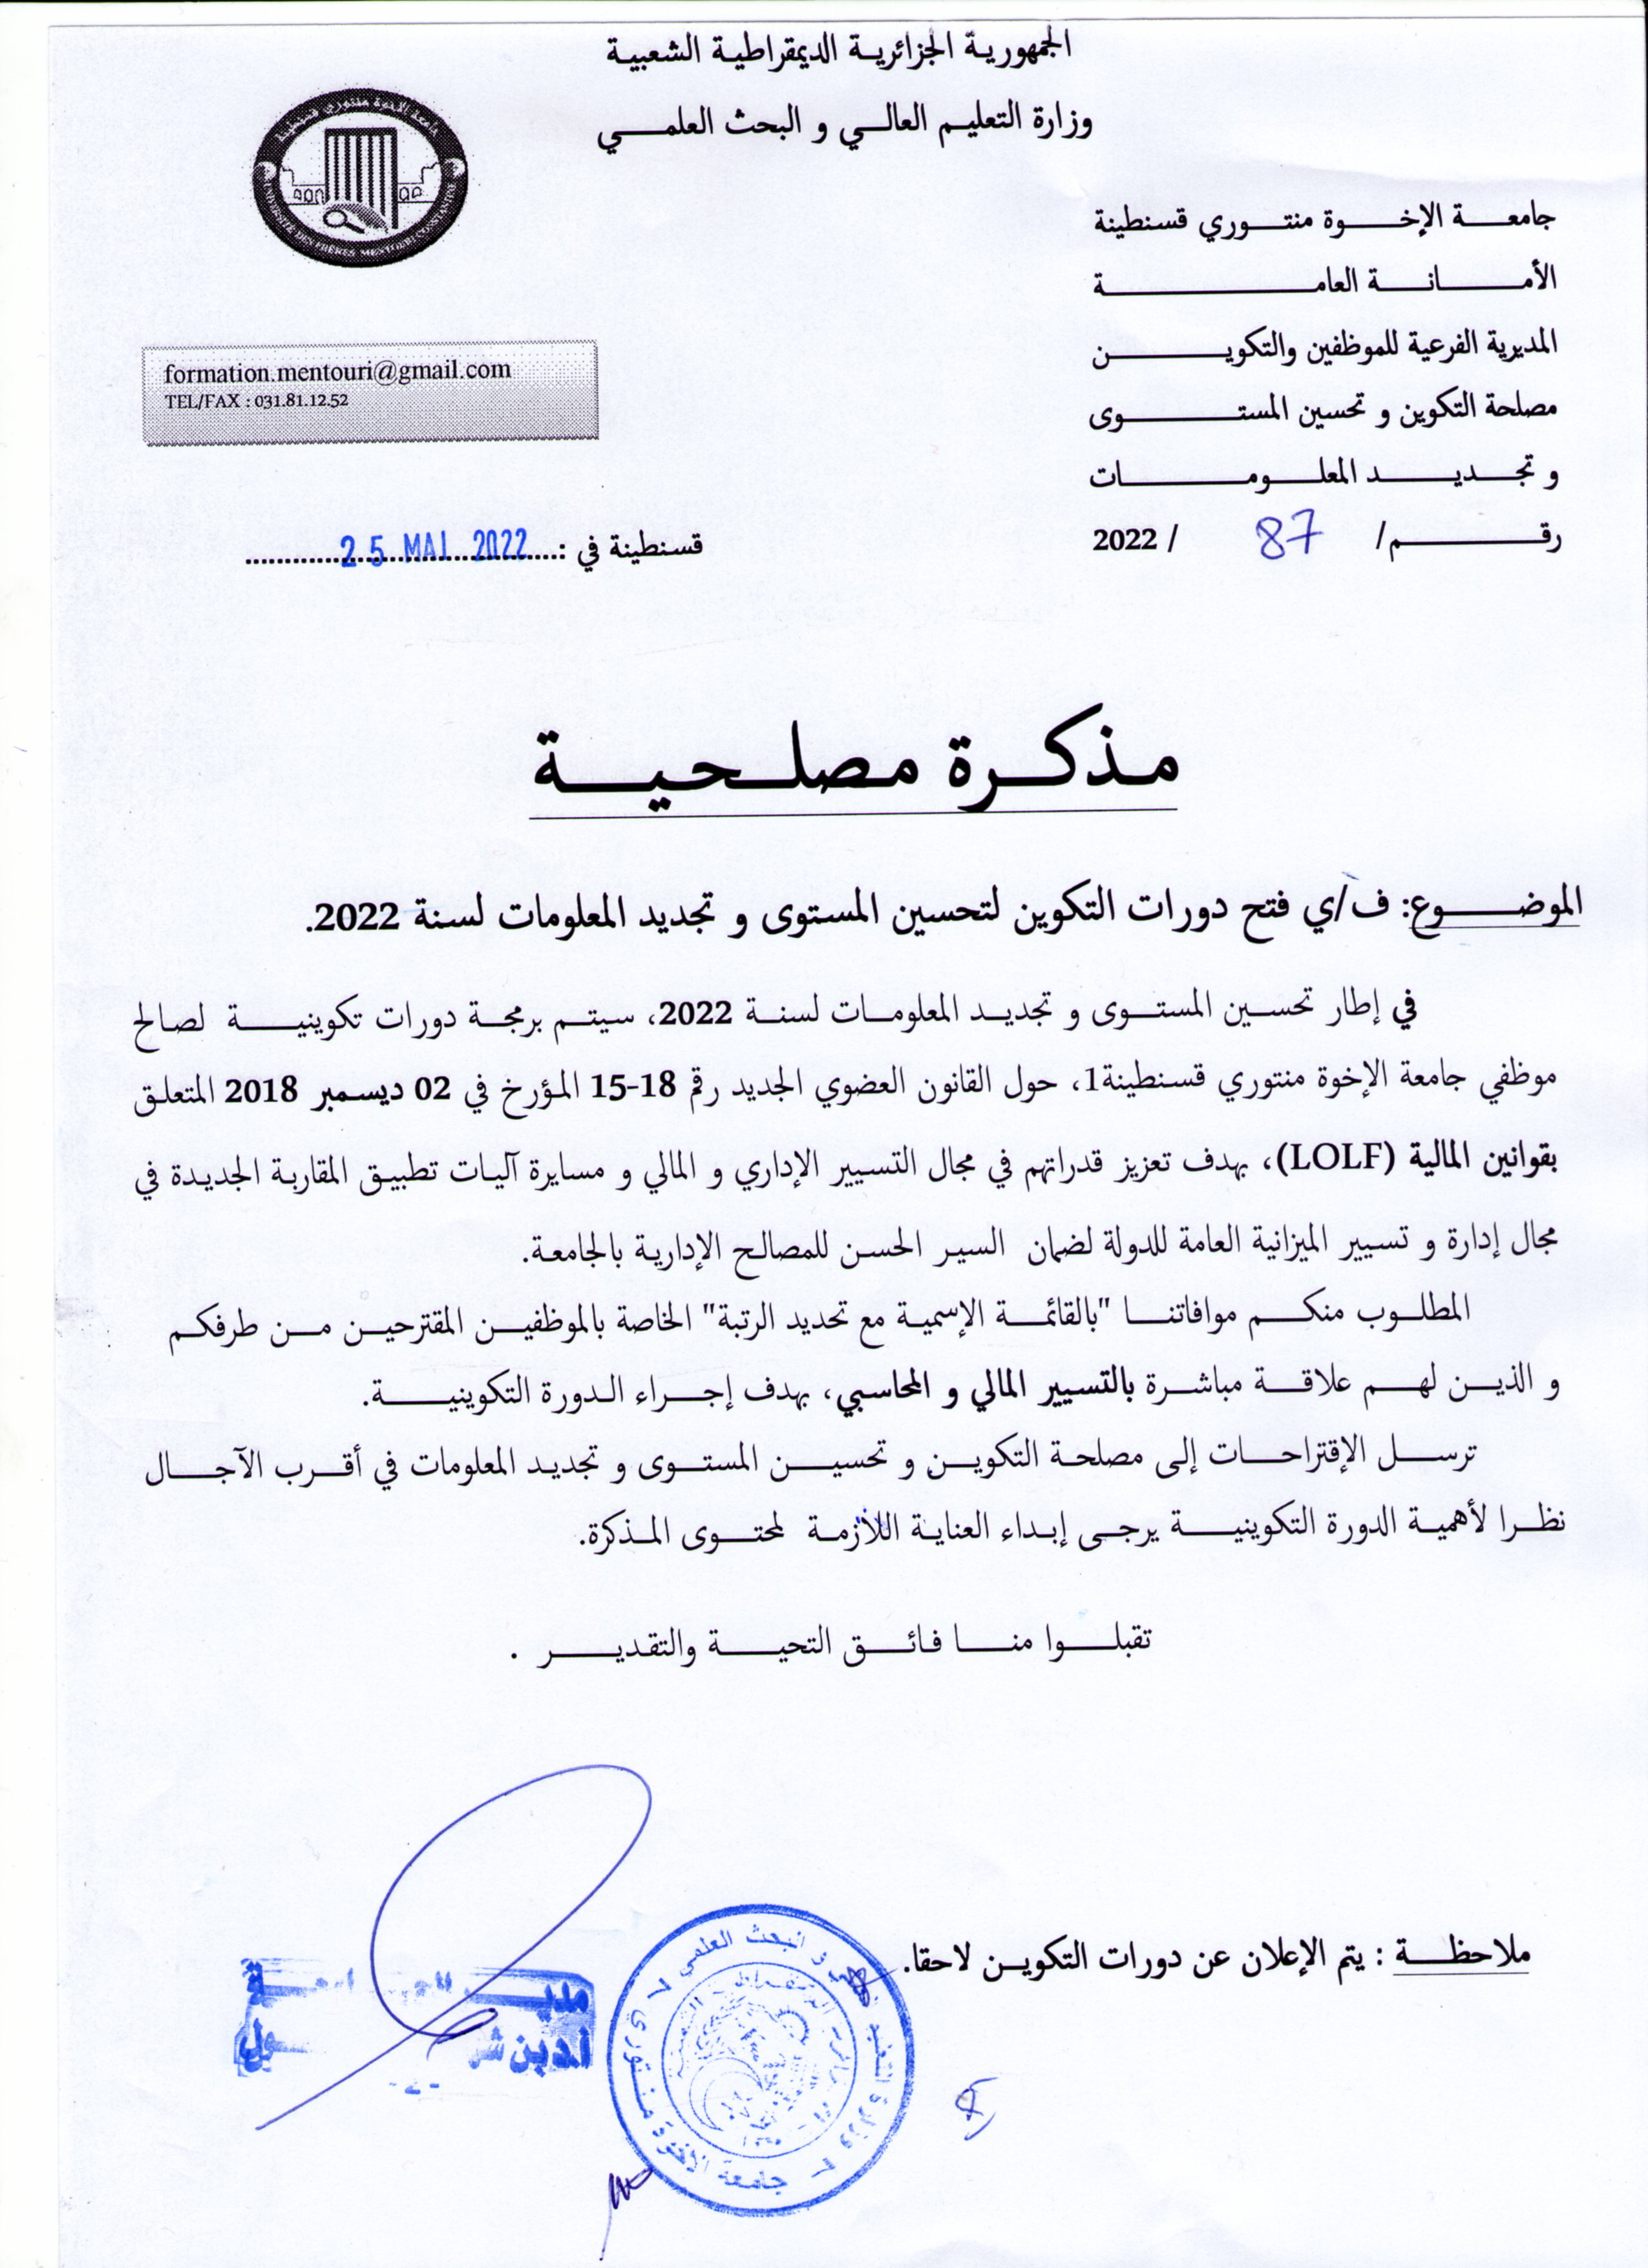 الجمهورية الجزائرية الديمقراطية الشعبية
وزارة التعليم العالي و البحث العلمي
جامعة الإخوة منتوري قسنطينة
UNIVERSITE DES FRÈRES MENTOURI CONSTANTINE
جامعة الإخوة منتوري قسنطينة
الأمانة العامة
المديرية الفرعية للموظفين والتكوين
مصلحة التكوين و تحسين المستوى
و تجديد المعلومات
رقم/ 87 / 2022
formation.mentouri@gmail.com
TEL/FAX : 031.81.12.52
قسنطينة في :25 MAI 2022
مذكرة مصلحية
الموضوع: ف/ي فتح دورات التكوين لتحسين المستوى و تجديد المعلومات لسنة 2022.
في إطار تحسين المستوى و تجديد المعلومات لسنة 2022، سيتم برمجة دورات تكوينية لصالح
موظفي جامعة الإخوة منتوري قسنطينة1، حول القانون العضوي الجديد رقم 18-15 المؤرخ في 02 ديسمبر 2018 المتعلق
بقوانين المالية (LOLF)، بهدف تعزيز قدراتهم في مجال التسيير الإداري و المالي و مسايرة آليات تطبيق المقاربة الجديدة في
مجال إدارة و تسيير الميزانية العامة للدولة لضمان السير الحسن للمصالح الإدارية بالجامعة.
المطلوب منكم موافاتنا "بالقائمة الإسمية مع تحديد الرتبة" الخاصة بالموظفين المقترحين من طرفكم
و الذين لهم علاقة مباشرة بالتسيير المالي و المحاسبي، بهدف إجراء الدورة التكوينية.
ترسل الإقتراحات إلى مصلحة التكوين و تحسين المستوى و تجديد المعلومات في أقرب الآجال
نظرا لأهمية الدورة التكوينية يرجى إبداء العناية اللازمة لمحتوى المذكرة.
تقبلوا منا فائق التحية والتقدير .
ملاحظة : يتم الإعلان عن دورات التكوين لاحقا.
و البحث العلمي
جامعة الإخوة منتوري